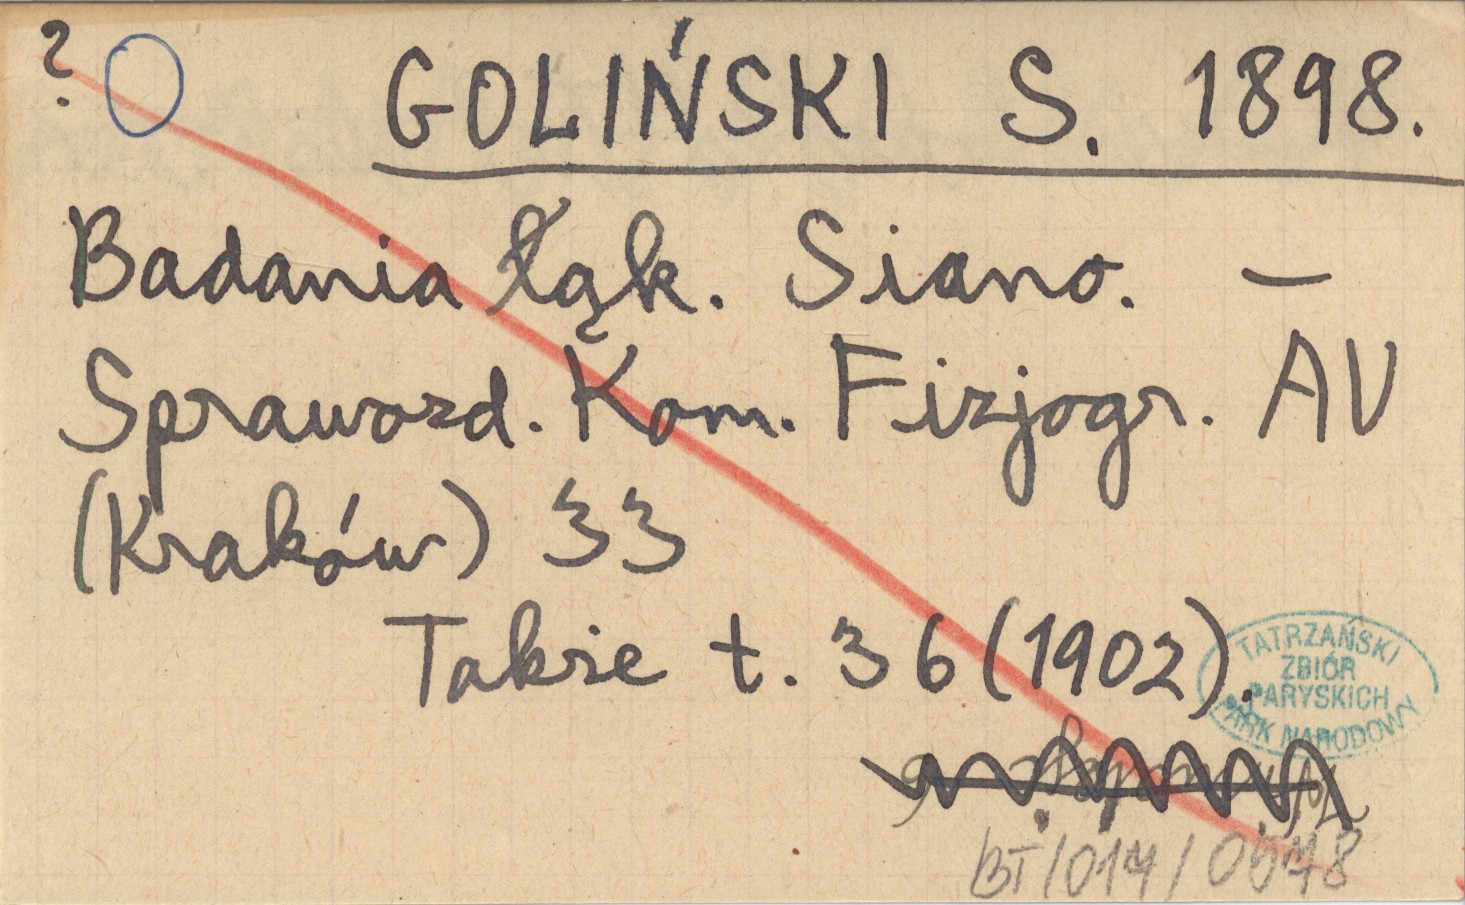 ?
GOLIŃSKI S. 1898.
Badania łąk. Siano. —
Sprawozd. Kom. Fizjogr. AU
(Kraków) 33
Także t. 36 (1902).
TATRZAŃSKI
ZBIÓR
PARYSKICH
PARK NARODOWY